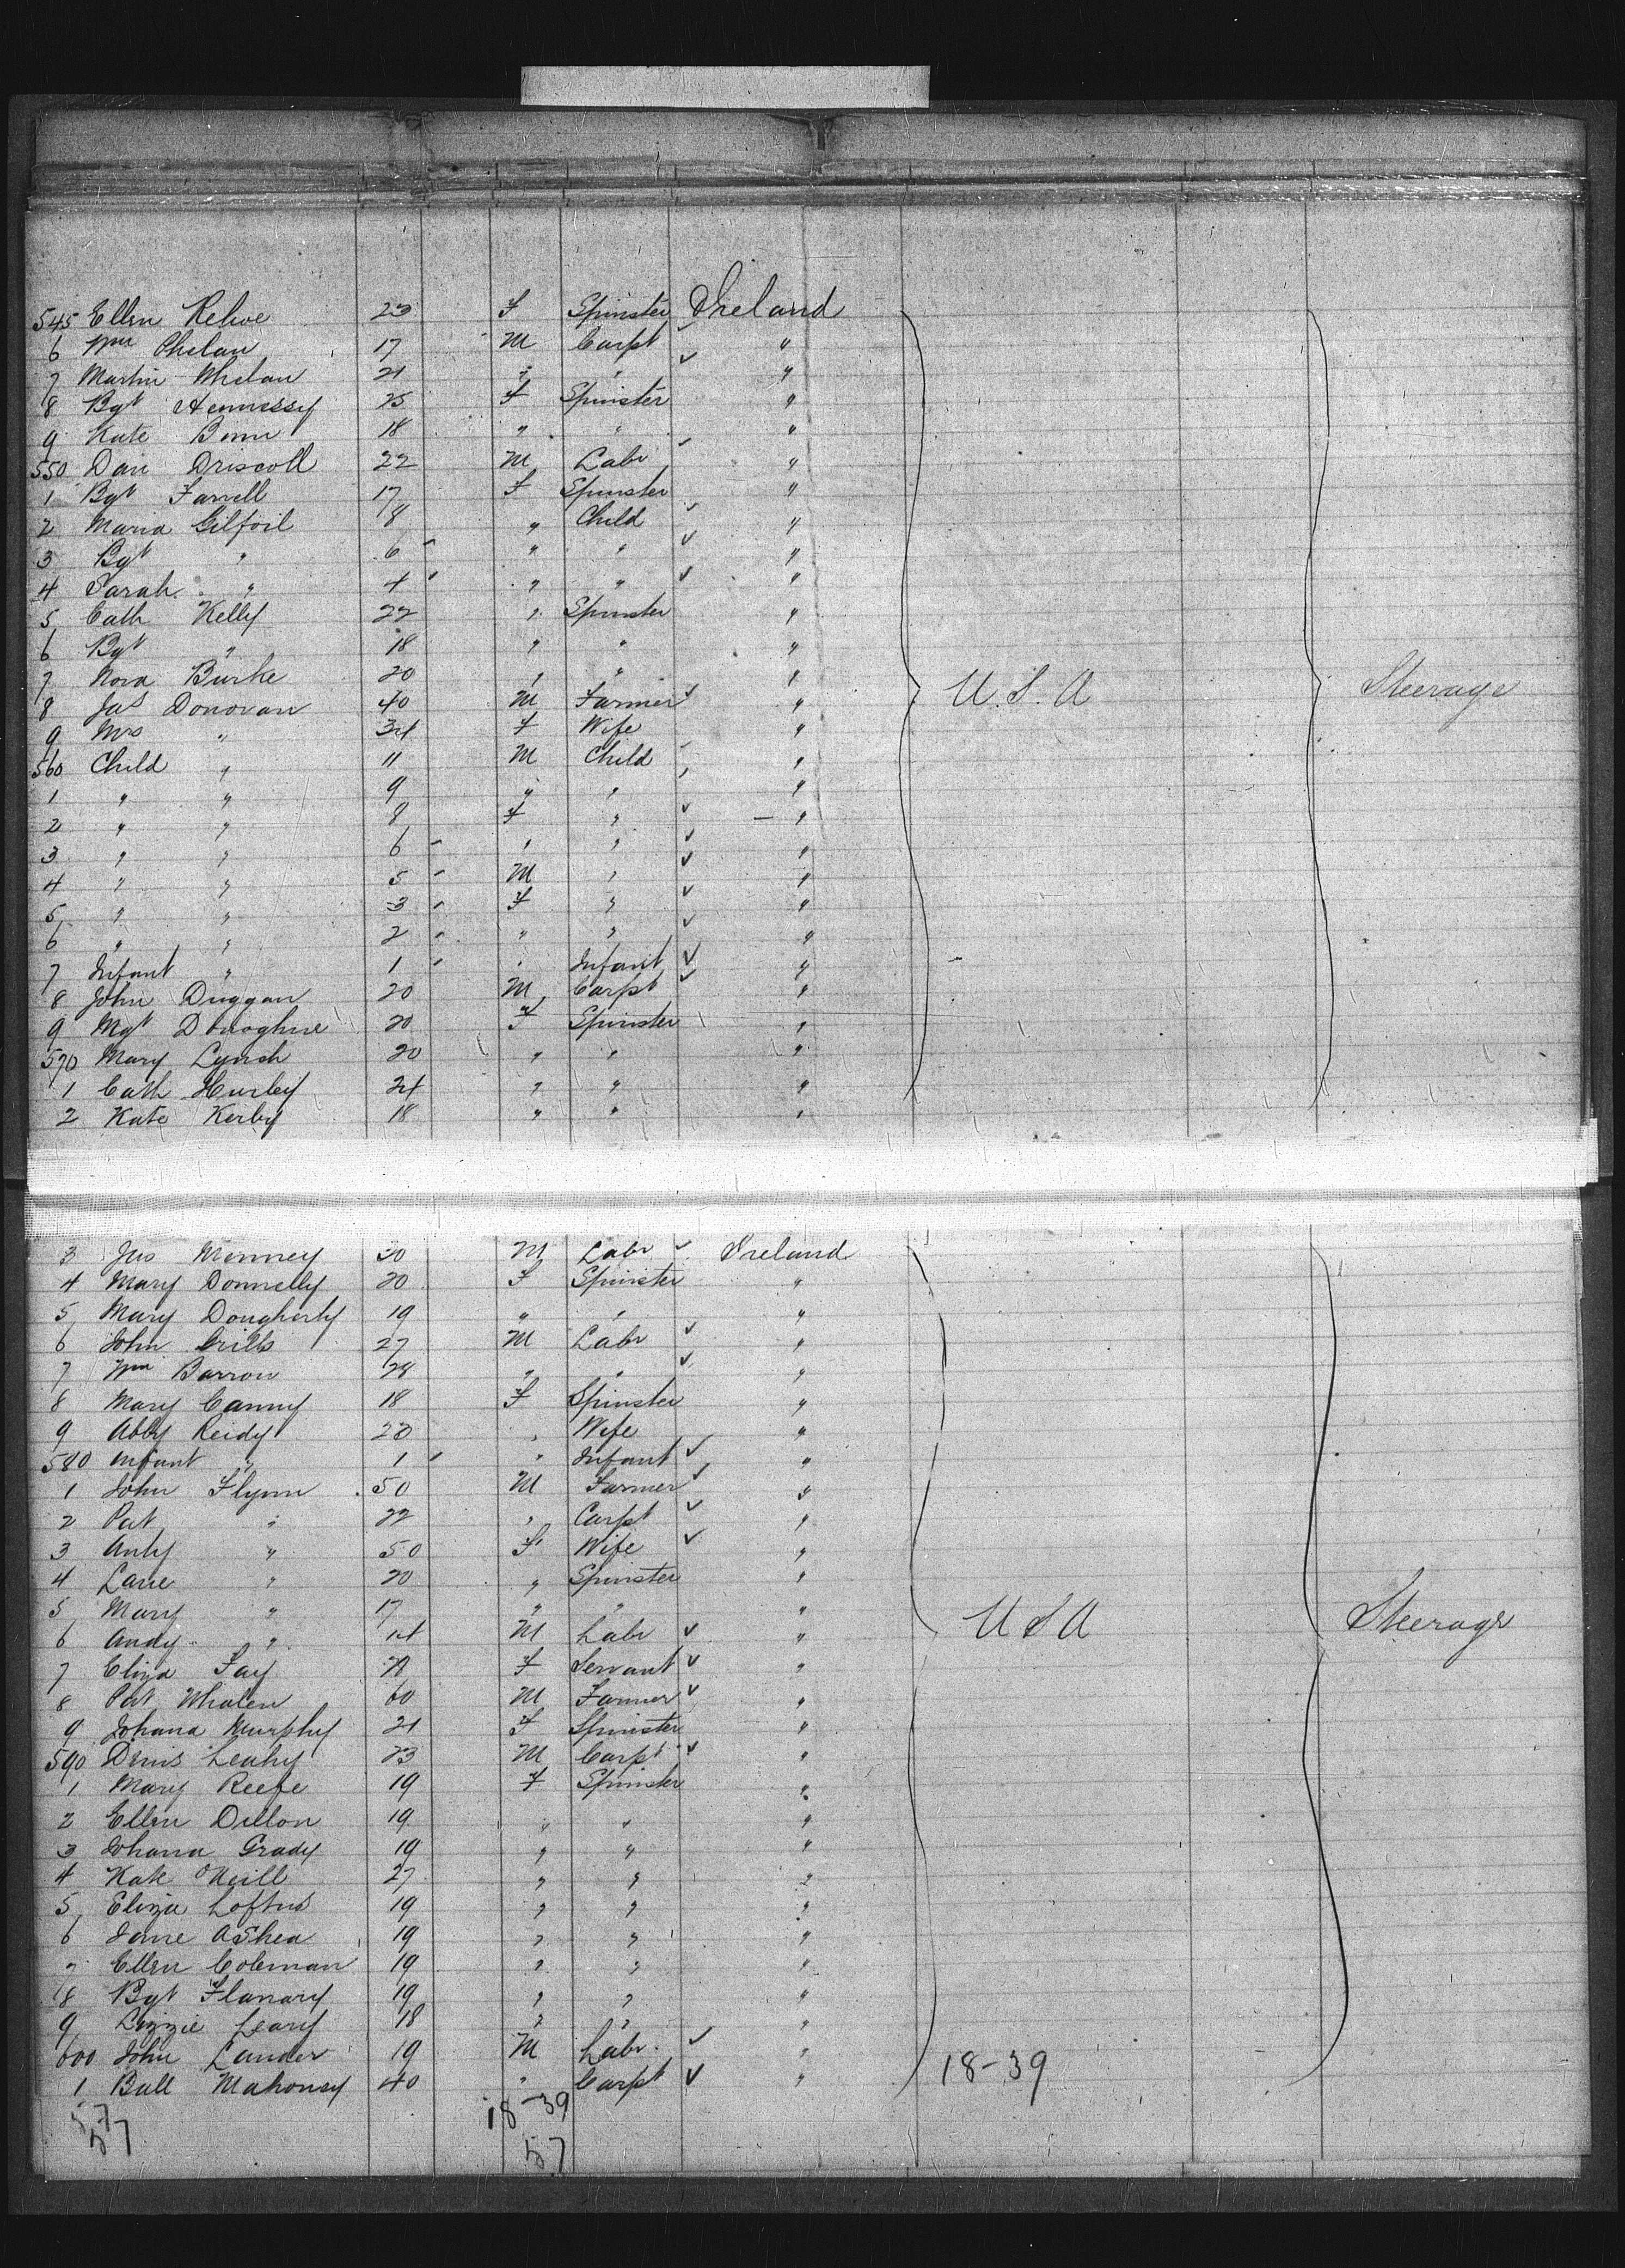 545 Ellen Kehoe 23 F Spinster Ireland
6 Wm Phelan 17 M Carpt ✓ "
7 Martin Whelan 21 " " ✓ "
8 Bgt Hennessy 25 F Spinster "
9 Kate Bonn 18 " " "
550 Dan Driscoll 22 M Labr ✓ "
1 Bgt Farrell 17 F Spinster "
2 Maria Gilfoil 8 " Child ✓ "
3 Bgt " 6 " " ✓ "
4 Sarah " 4 " " ✓ "
5 Cath Kelly 22 " Spinster "
6 Bgt " 18 " " "
7 Nora Burke 20 " " "
8 Jas Donovan 40 M Farmer ✓ " U.S.A Steerage
9 Mrs " 34 F Wife "
560 Child " 11 M Child ✓ "
1 " " 9 " " "
2 " " 8 F " ✓ "
3 " " 6 " " ✓ "
4 " " 5 M " ✓ "
5 " " 3 F " ✓ "
6 " " 2 " " ✓ "
7 Infant " 1 " Infant ✓ "
8 John Duggan 20 M Carpt ✓ "
9 Mgt Donoghue 20 F Spinster "
570 Mary Lynch 20 " " "
1 Cath Hurley 24 " " "
2 Kate Kerby 18 " " "
3 Jas Menney 30 M Labr ✓ Ireland
4 Mary Donnelly 20 F Spinster "
5 Mary Dougherty 19 " " "
6 John 27 M Labr ✓ "
7 Wm Barron 28 " " ✓ "
8 Mary Canny 18 F Spinster "
9 Abby Reidy 23 " Wife "
580 Infant " 1 " Infant ✓ "
1 John Flynn 50 M Farmer ✓ "
2 Pat " 22 " Carpt ✓ "
3 Anty " 50 F Wife ✓ "
4 " 20 " Spinster "
5 Mary " 17 " " "
6 Andy " 14 M Labr ✓ " U S A Steerage
7 Eliza Fay F Servant ✓ "
8 Pat Whalen 60 M Farmer ✓ "
9 Johana Murphy 21 F Spinster "
590 Denis Leahy 23 M Carpt ✓ "
1 Mary Keefe 19 F Spinster "
2 Ellen Dillon 19 " " "
3 Johana Grady 19 " " "
4 Kate O'Neill 27 " " "
5 Eliza Loftus 19 " " "
6 Jane OShea 19 " " "
7 Ellen Coleman 19 " " "
8 Bgt Flanary 19 " " "
9 Lizzie Leary 18 " " "
600 John Lander 19 M Labr ✓ "
1 Mahoney 40 " Carpt ✓ " 18-39
57 18-39
57 57